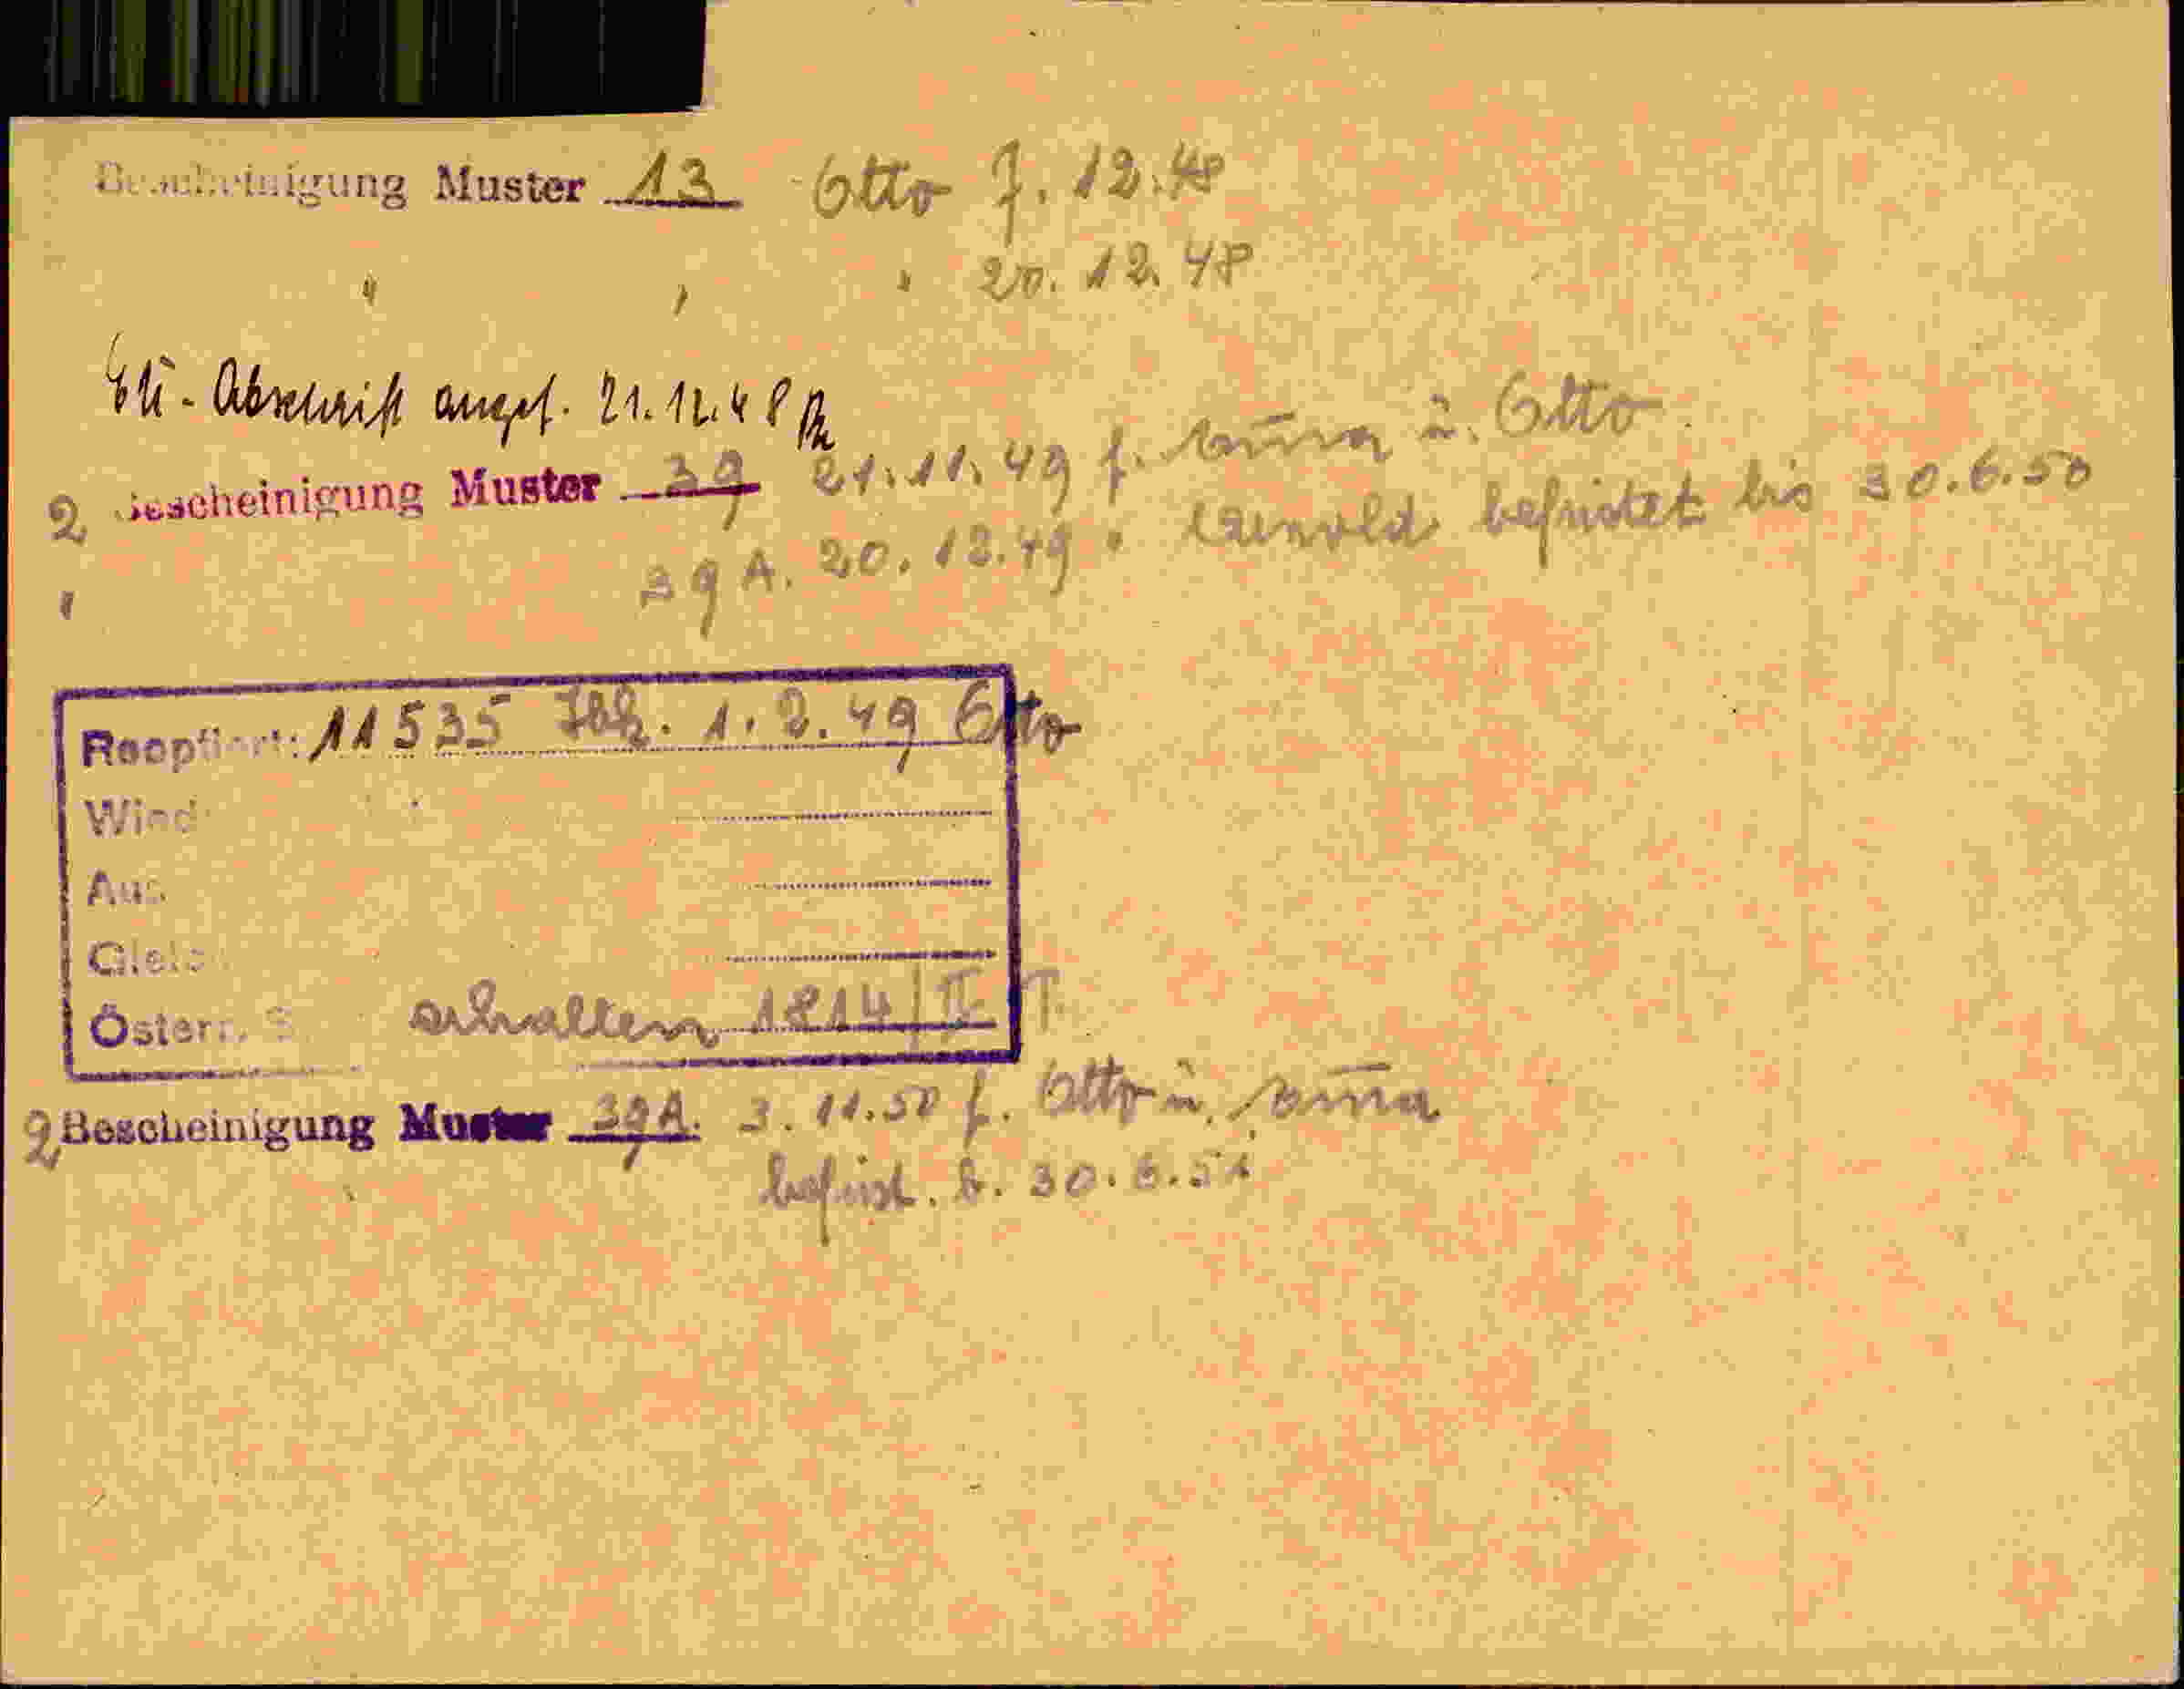 Bescheinigung Muster 13 Otto 7. 12. 48
" " " 20. 12. 48
Abschrift angef. 21.12.48
2 Bescheinigung Muster 39 21. 11. 49 f. Anna u. Otto
" 39 A. 20. 12. 49 " befristet bis 30.6.50
Reoptiert: 11535 Ibk. 1. 2. 49 Otto
Wied
Aus
Gleic
Österr. S erhalten 1814/II T.
2 Bescheinigung Muster 39A. 3. 11. 50 f. Otto u. Anna
befrist. b. 30. 6. 51